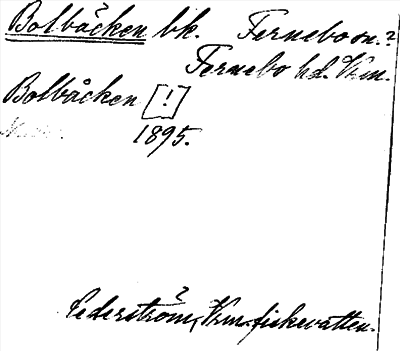 Bolbäcken bk. Fernebo sn.?
Fernebo hd. Vrm.
Bolbåcken [!]
1895.
?
Cederström, Vrm. fiskevatten.